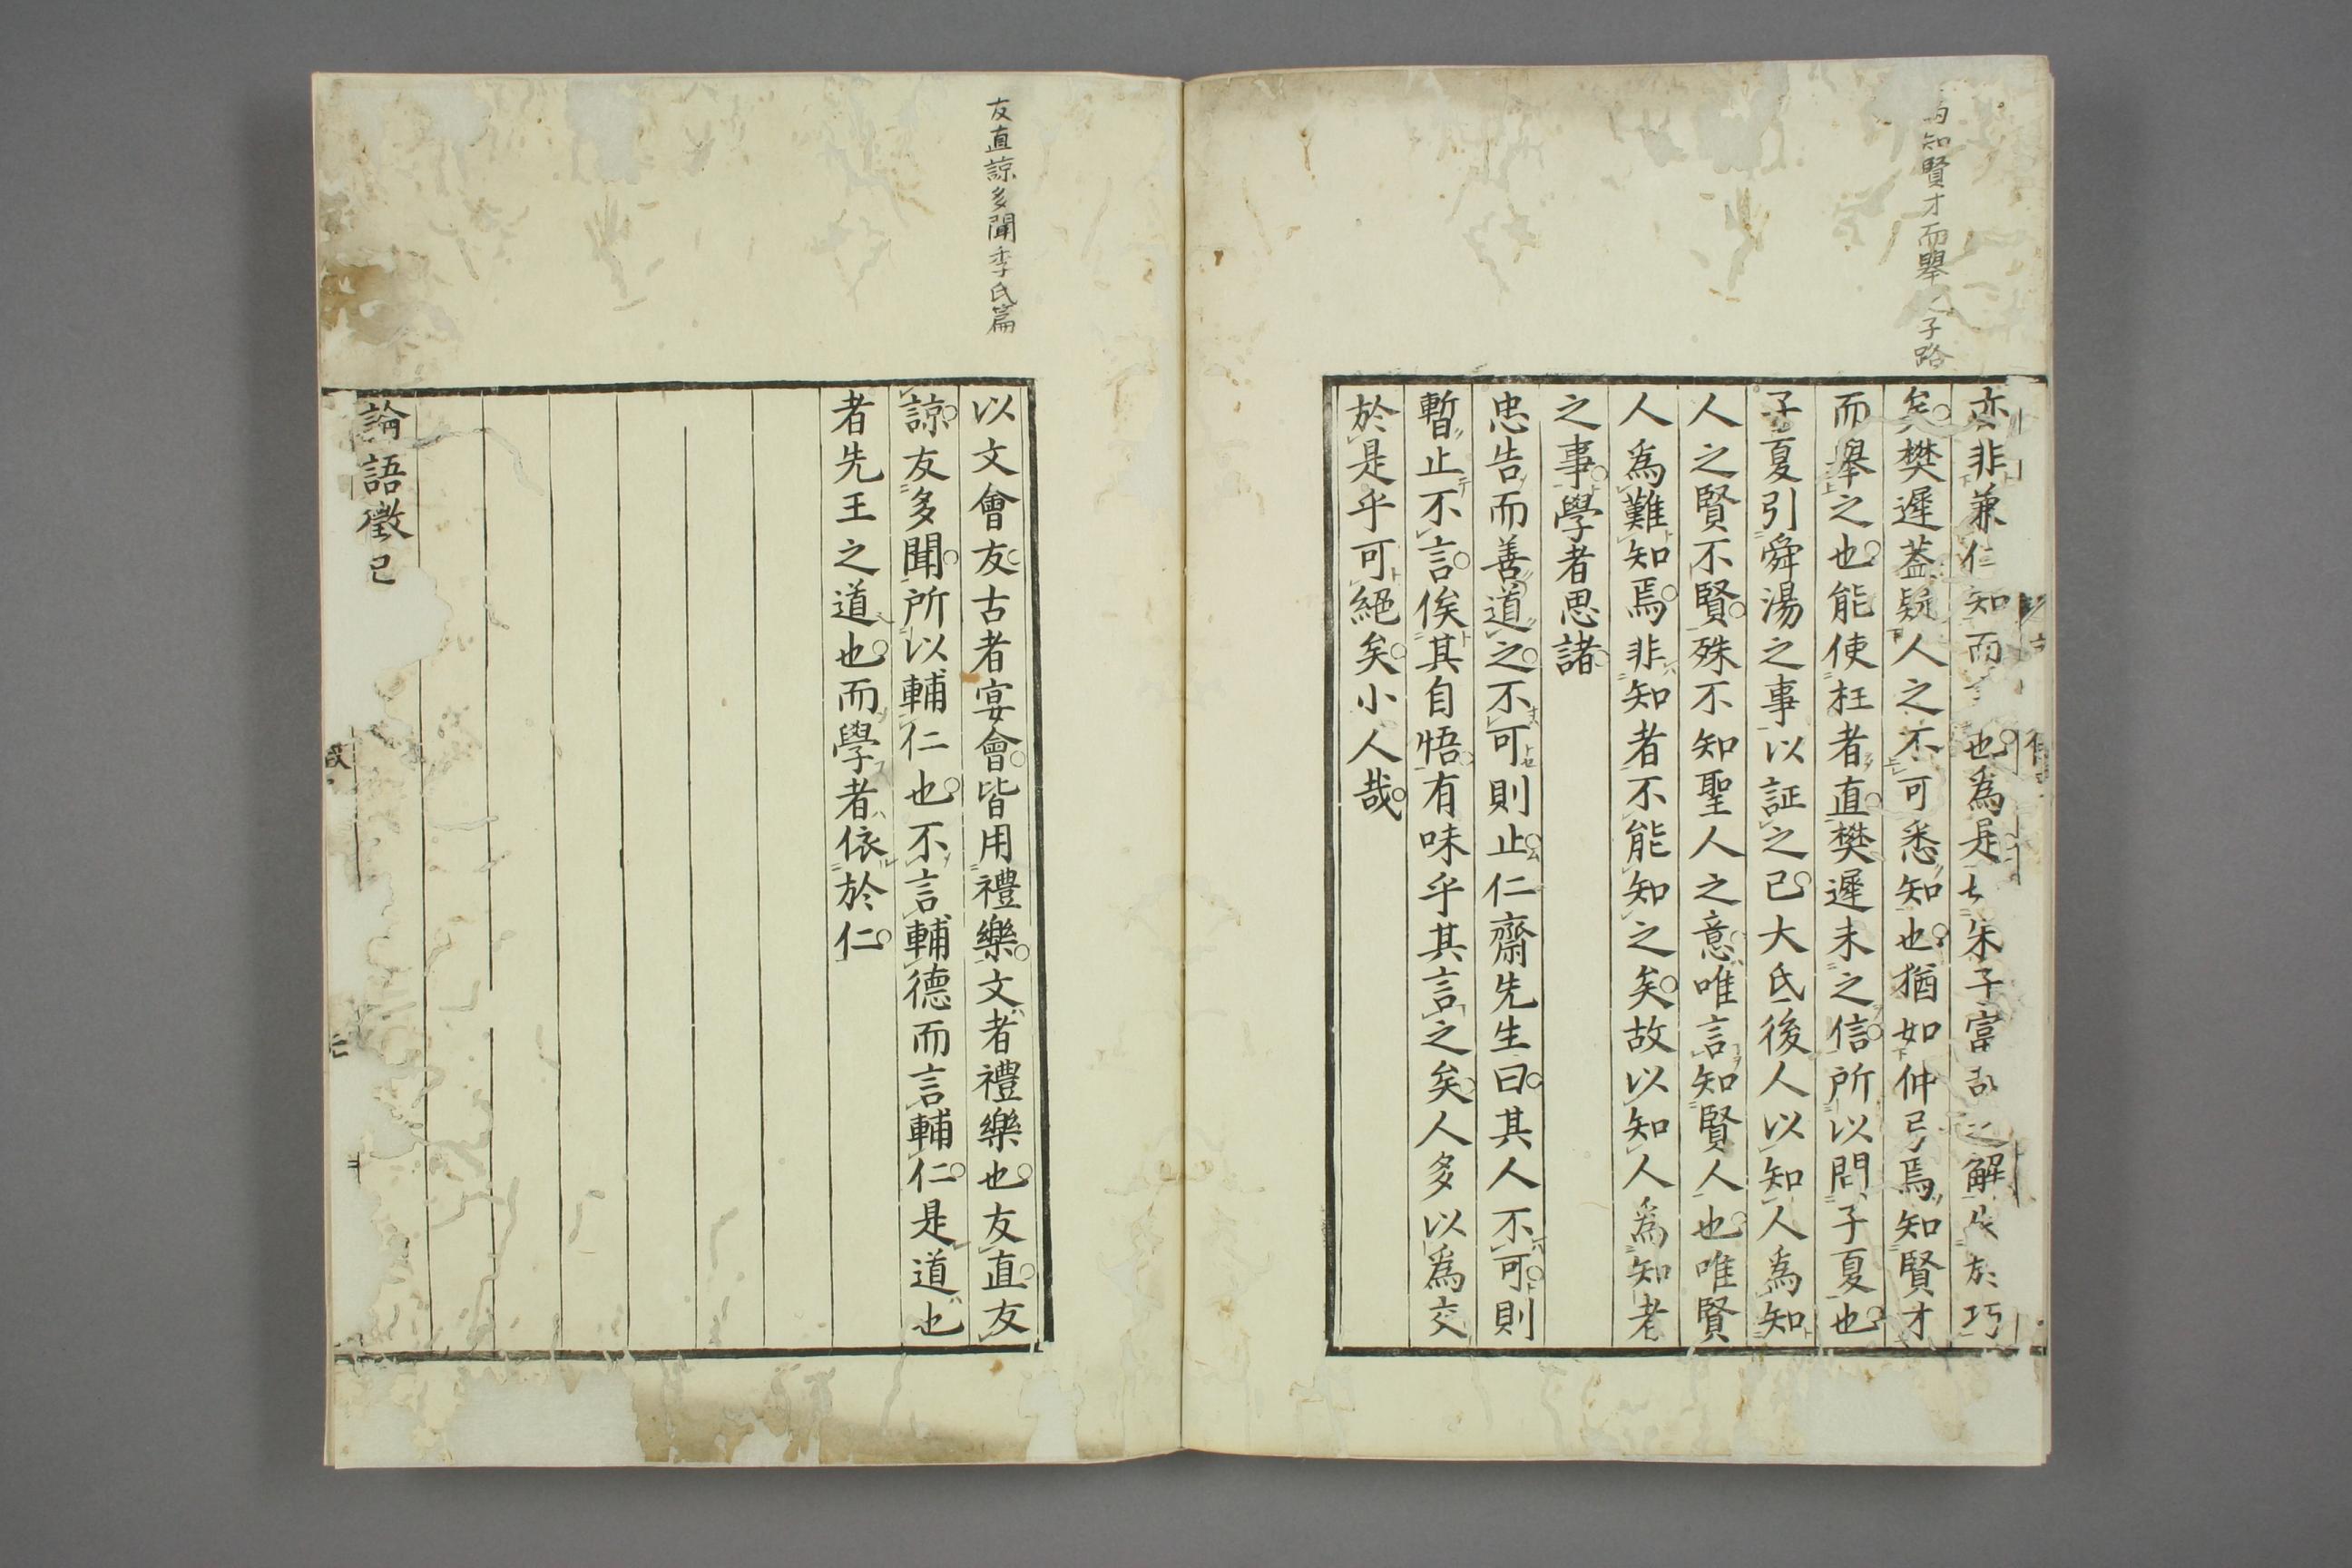 知賢才而舉之子路
亦非兼仁知而言也爲是故朱子富哉之解失於巧
矣樊遲蓋疑人之不可悉知也猶如仲弓焉知賢才
而舉之也能使枉者直樊遲未之信所以問子夏也
子夏引舜湯之事以証之已大氐後人以知人爲知
人之賢不賢殊不知聖人之意唯言知賢人也唯賢
人爲難知焉非知者不能知之矣故以知人爲知者
之事學者思諸
忠告而善道之不可則止仁齋先生曰其人不可則
暫止不言俟其自悟有味乎其言之矣人多以爲交
於是乎可絕矣小人哉
友直諒多聞季氏篇
以文會友古者宴會皆用禮樂文者禮樂也友直友
諒友多聞所以輔仁也不言輔德而言輔仁是道也
者先王之道也而學者依於仁
論語徵已